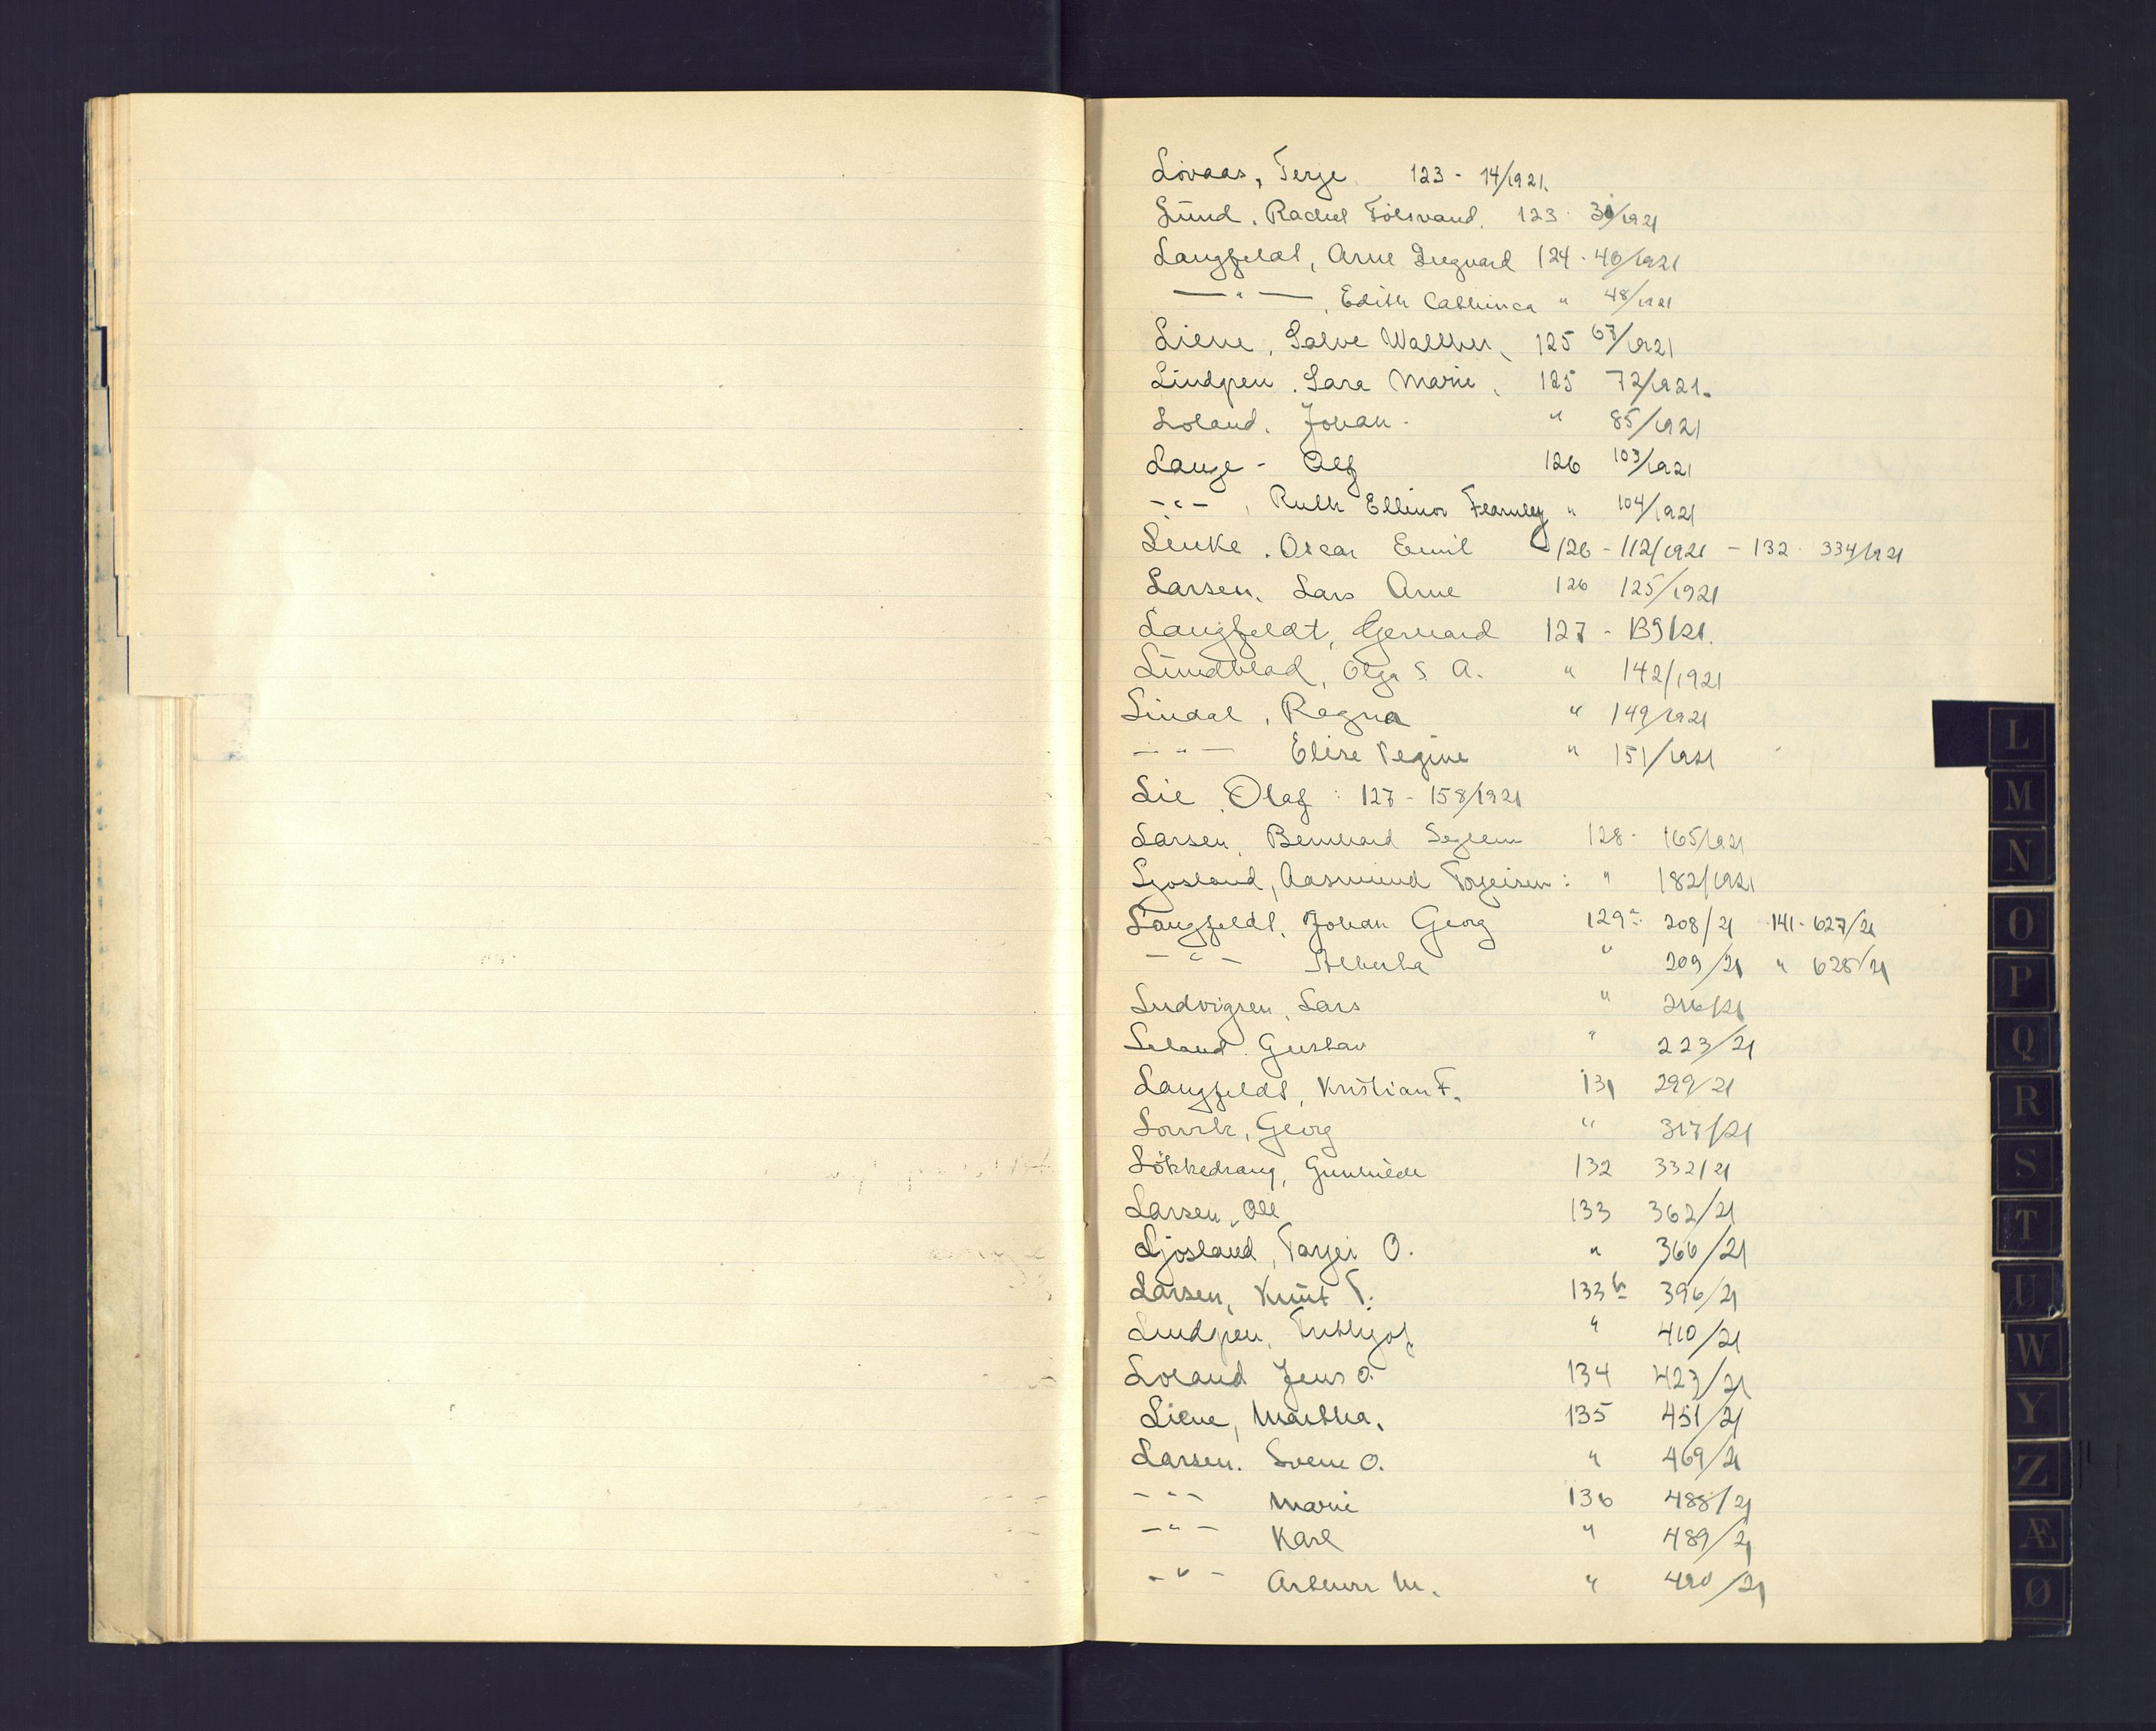 Lovaas, Terje 123 - 14/1921.
Lund. Rachel Tolsvand. 123 - 30/1921
Langfeldt, Arne Dregvard 124 - 46/1921
— " — , Edith Cathinca " 48/1921
Liene, Salve Walther, 125 67/1921
Lindgren. Sara Marie, 125 72/1921.
Loland. Johan. " 85/1921
Lange - Alf 126 103/1921
- " - , Ruth Ellinor Fearnley " 104/1921
Linke. Oscar Emil 126 - 112/1921 - 132 - 334/1921
Larsen, Lars Arne 126 125/1921
Langfeldt, Gerhard 127 - 139/21.
Lundblad, Olga S. A. " 142/1921
Lindal, Ragna " 149/1921
— " — Elise Regine " 151/1921
Lie, Olaf : 127 - 158/1921
Larsen, Bernhard Seglem 128 - 165/1921
Ljosland, Aasmund Torjeisen : " 182/1921
Langfeldt, Johan Georg 129 a 208/21 141 - 627/21
- " - Alberta " 209/21 " 628/21
Ludvigsen, Lars " 216/21
Leland Gustav " 223/21
Langfeldt, Kristian F. 131 299/21
Georg " 317/21
Lökkedrang, Gunhilde 132 332/21
Larsen, Ole 133 362/21
Ljosland, Tarjei O. " 366/21
Larsen, Knut T. 133 b 396/21
Lindgren, Frithjof. " 410/21
Loland Jens O. 134 423/21
Liene, Martha. 135 451/21
Larsen. Svein O. " 469/21
- " - Marie 136 488/21
- " - Karl " 489/21
- " - Arthur M. " 490/21
L
M
N
O
P
Q
R
S
T
U
W
Y
Z
Æ
Ø